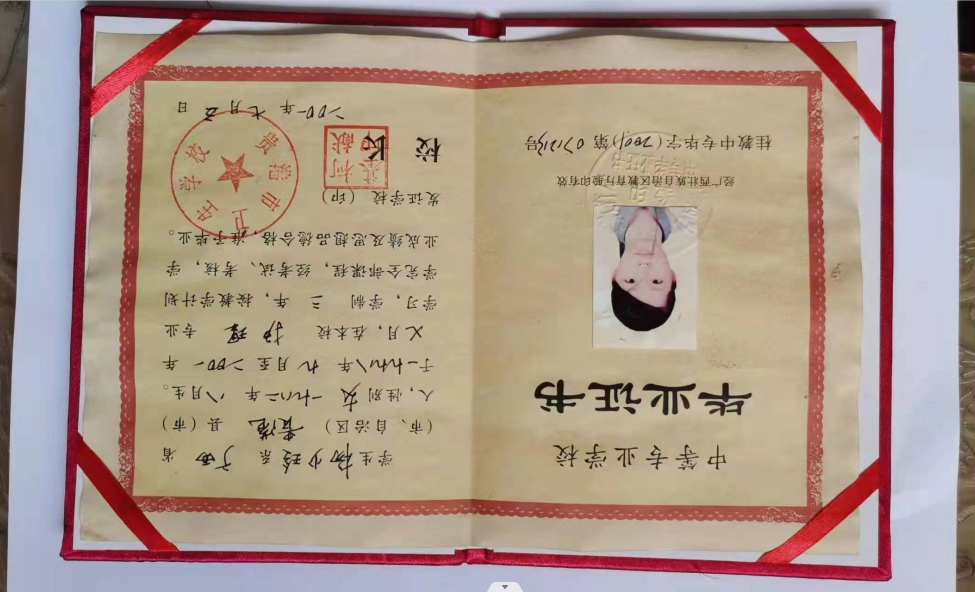 中等专业学校
毕业证书
经广西壮族自治区教育厅验印有效
桂教中专毕字(2001)第071213号
学生 杨少玲 系 广西 省
(市、自治区) 贵港 县(市)
人,性别 女 一九八二年 八 月生。
于一九九八年 九 月至二〇〇一年
七月,在本校 护理 专业
学习,学制 三 年,按教学计划
学完全部课程,经考试、考核,学
业成绩及思想品德合格,准予毕业。
发证学校(印)
校 长
贵港市卫生学校
二〇〇一年 七 月 五 日